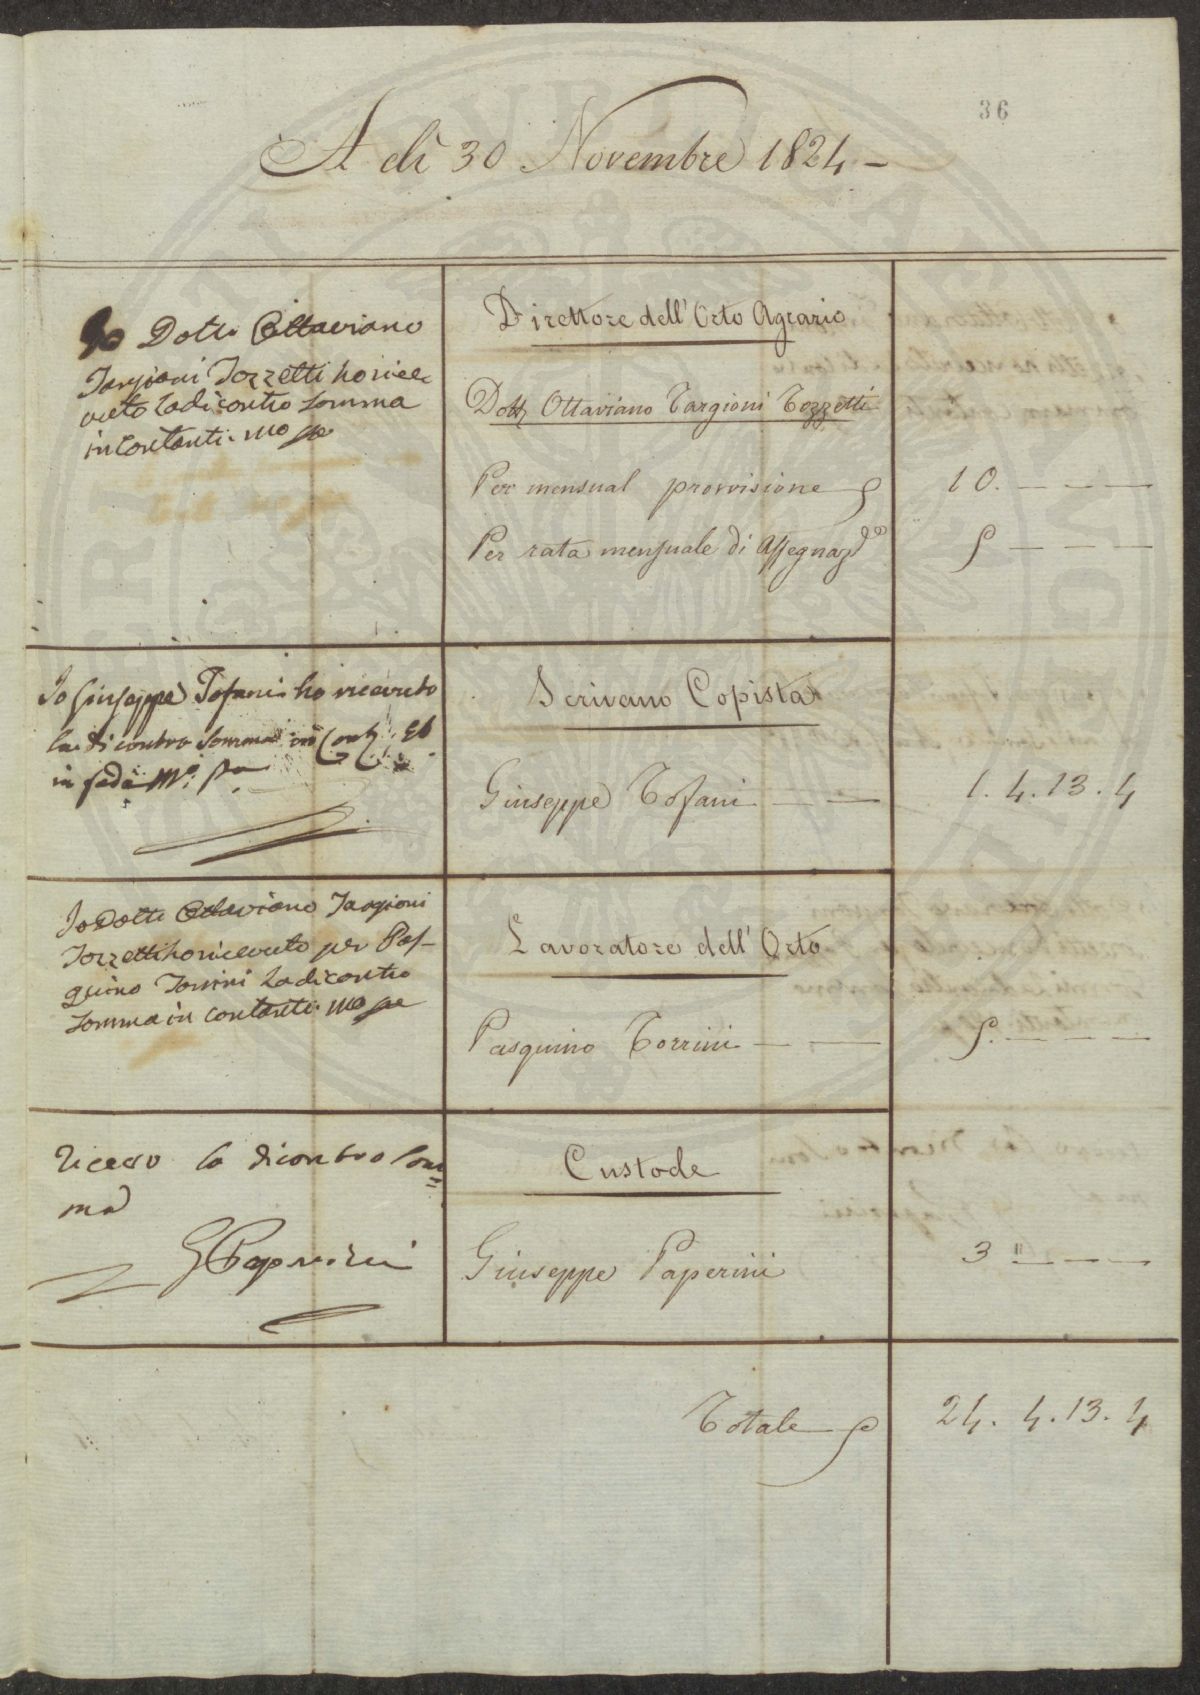 36
A dì 30 Novembre 1824 –
Io Dotte Ottaviano
Targioni Tozzetti ho rice-
vuto la di contro somma
in contanti. mo ppa
Direttore dell' Orto Agrario
Dott Ottaviano Targioni Tozzetti
Per mensual provvisione
10. — — —
Per rata mensuale di Assegnaz
5 — — —
Io Giuseppe Tofani ho ricevuto
la di contro somma in Cont
in fede Mo. pa
Scrivano Copista
Giuseppe Tofani — —
1. 4. 13. 4
Io Dotte Ottaviano Targioni
Tozzetti ho ricevuto per Pas-
quino Torrini la di contro
somma in contanti. mo pa
Lavoratore dell' Orto
Pasquino Torrini — —
5. — — —
Ricevo la dicontro som=
ma
G Paperini
Custode
Giuseppe Paperini
3 " — — —
Totale
24. 4. 13. 4